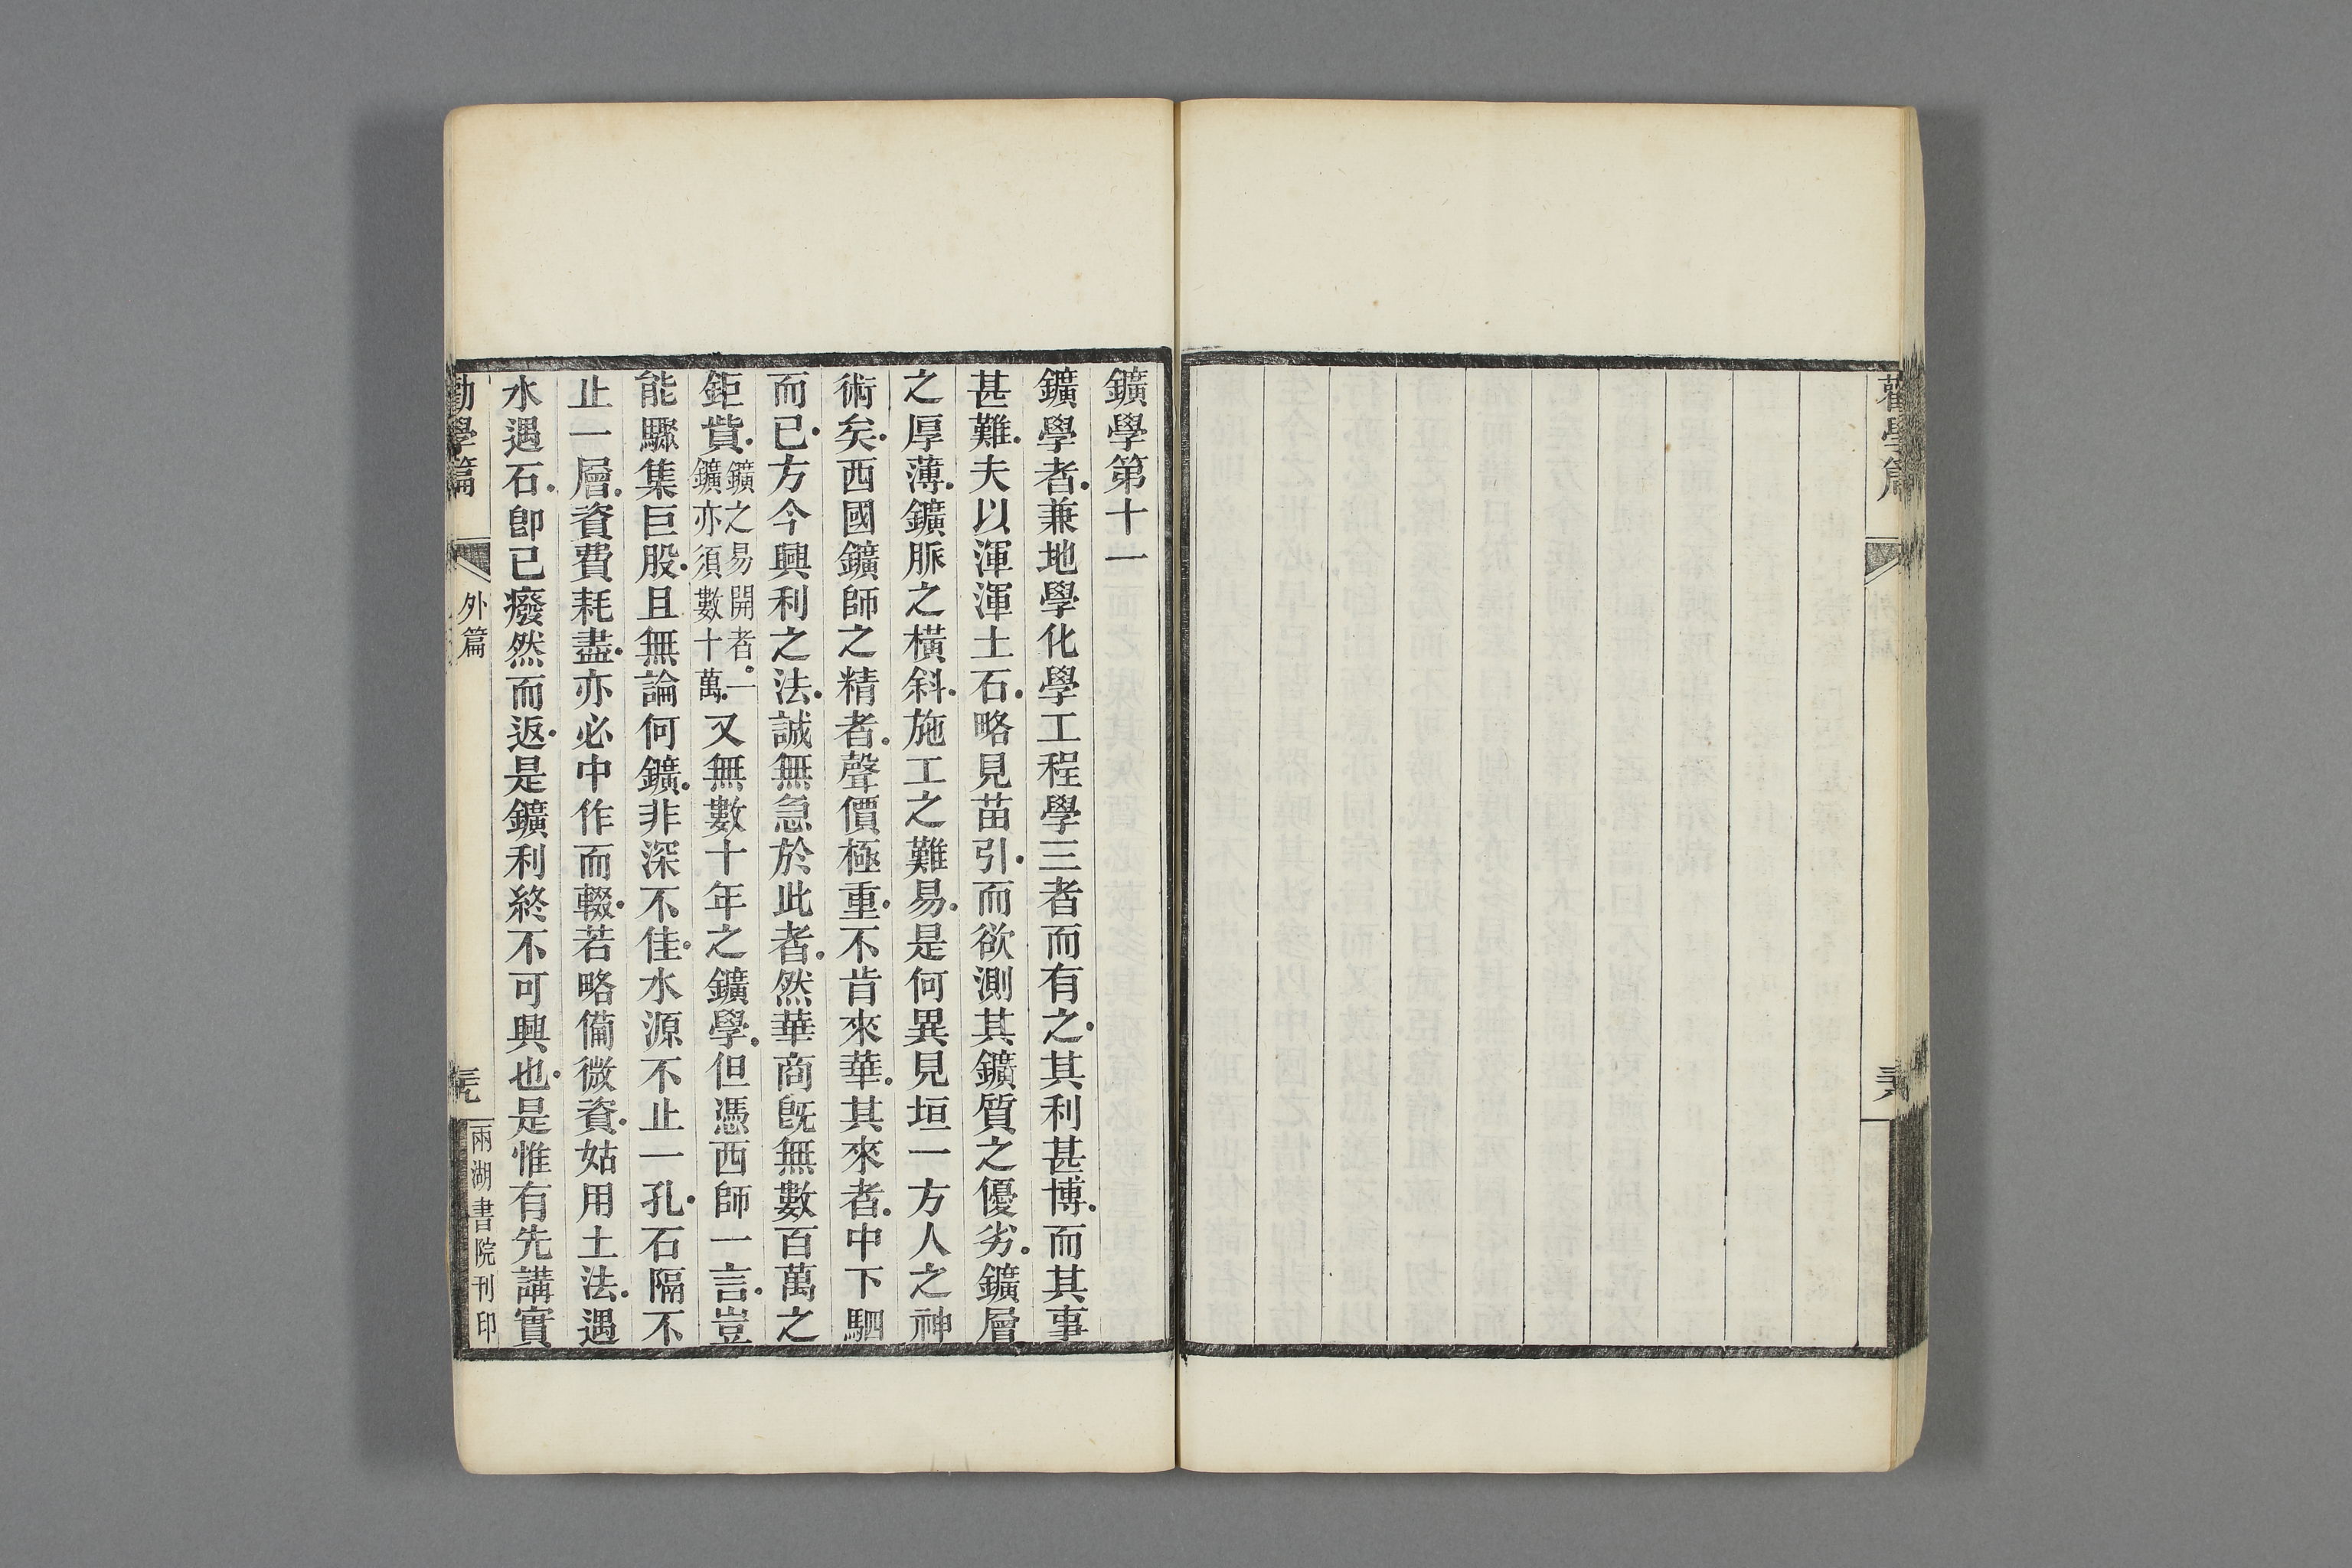 鑛學第十一
鑛學者．兼地學化學工程學三者而有之．其利甚博．而其事
甚難．夫以渾渾土石．略見苗引．而欲測其鑛質之優劣．鑛層
之厚薄．鑛脈之橫斜．施工之難易．是何異見垣一方人之神
術矣．西國鑛師之精者．聲價極重．不肯來華．其來者．中下駟
而已．方今興利之法．誠無急於此者．然華商旣無數百萬之
鉅貲．鑛之易開者．一鑛亦須數十萬．又無數十年之鑛學．但憑西師一言．豈
能驟集巨股．且無論何鑛．非深不佳．水源不止一孔．石隔不
止一層．資費耗盡．亦必中作而輟．若略備微資．姑用土法．遇
水遇石．卽已廢然而返．是鑛利終不可興也．是惟有先講實
勸學篇
外篇
兩湖書院刊印